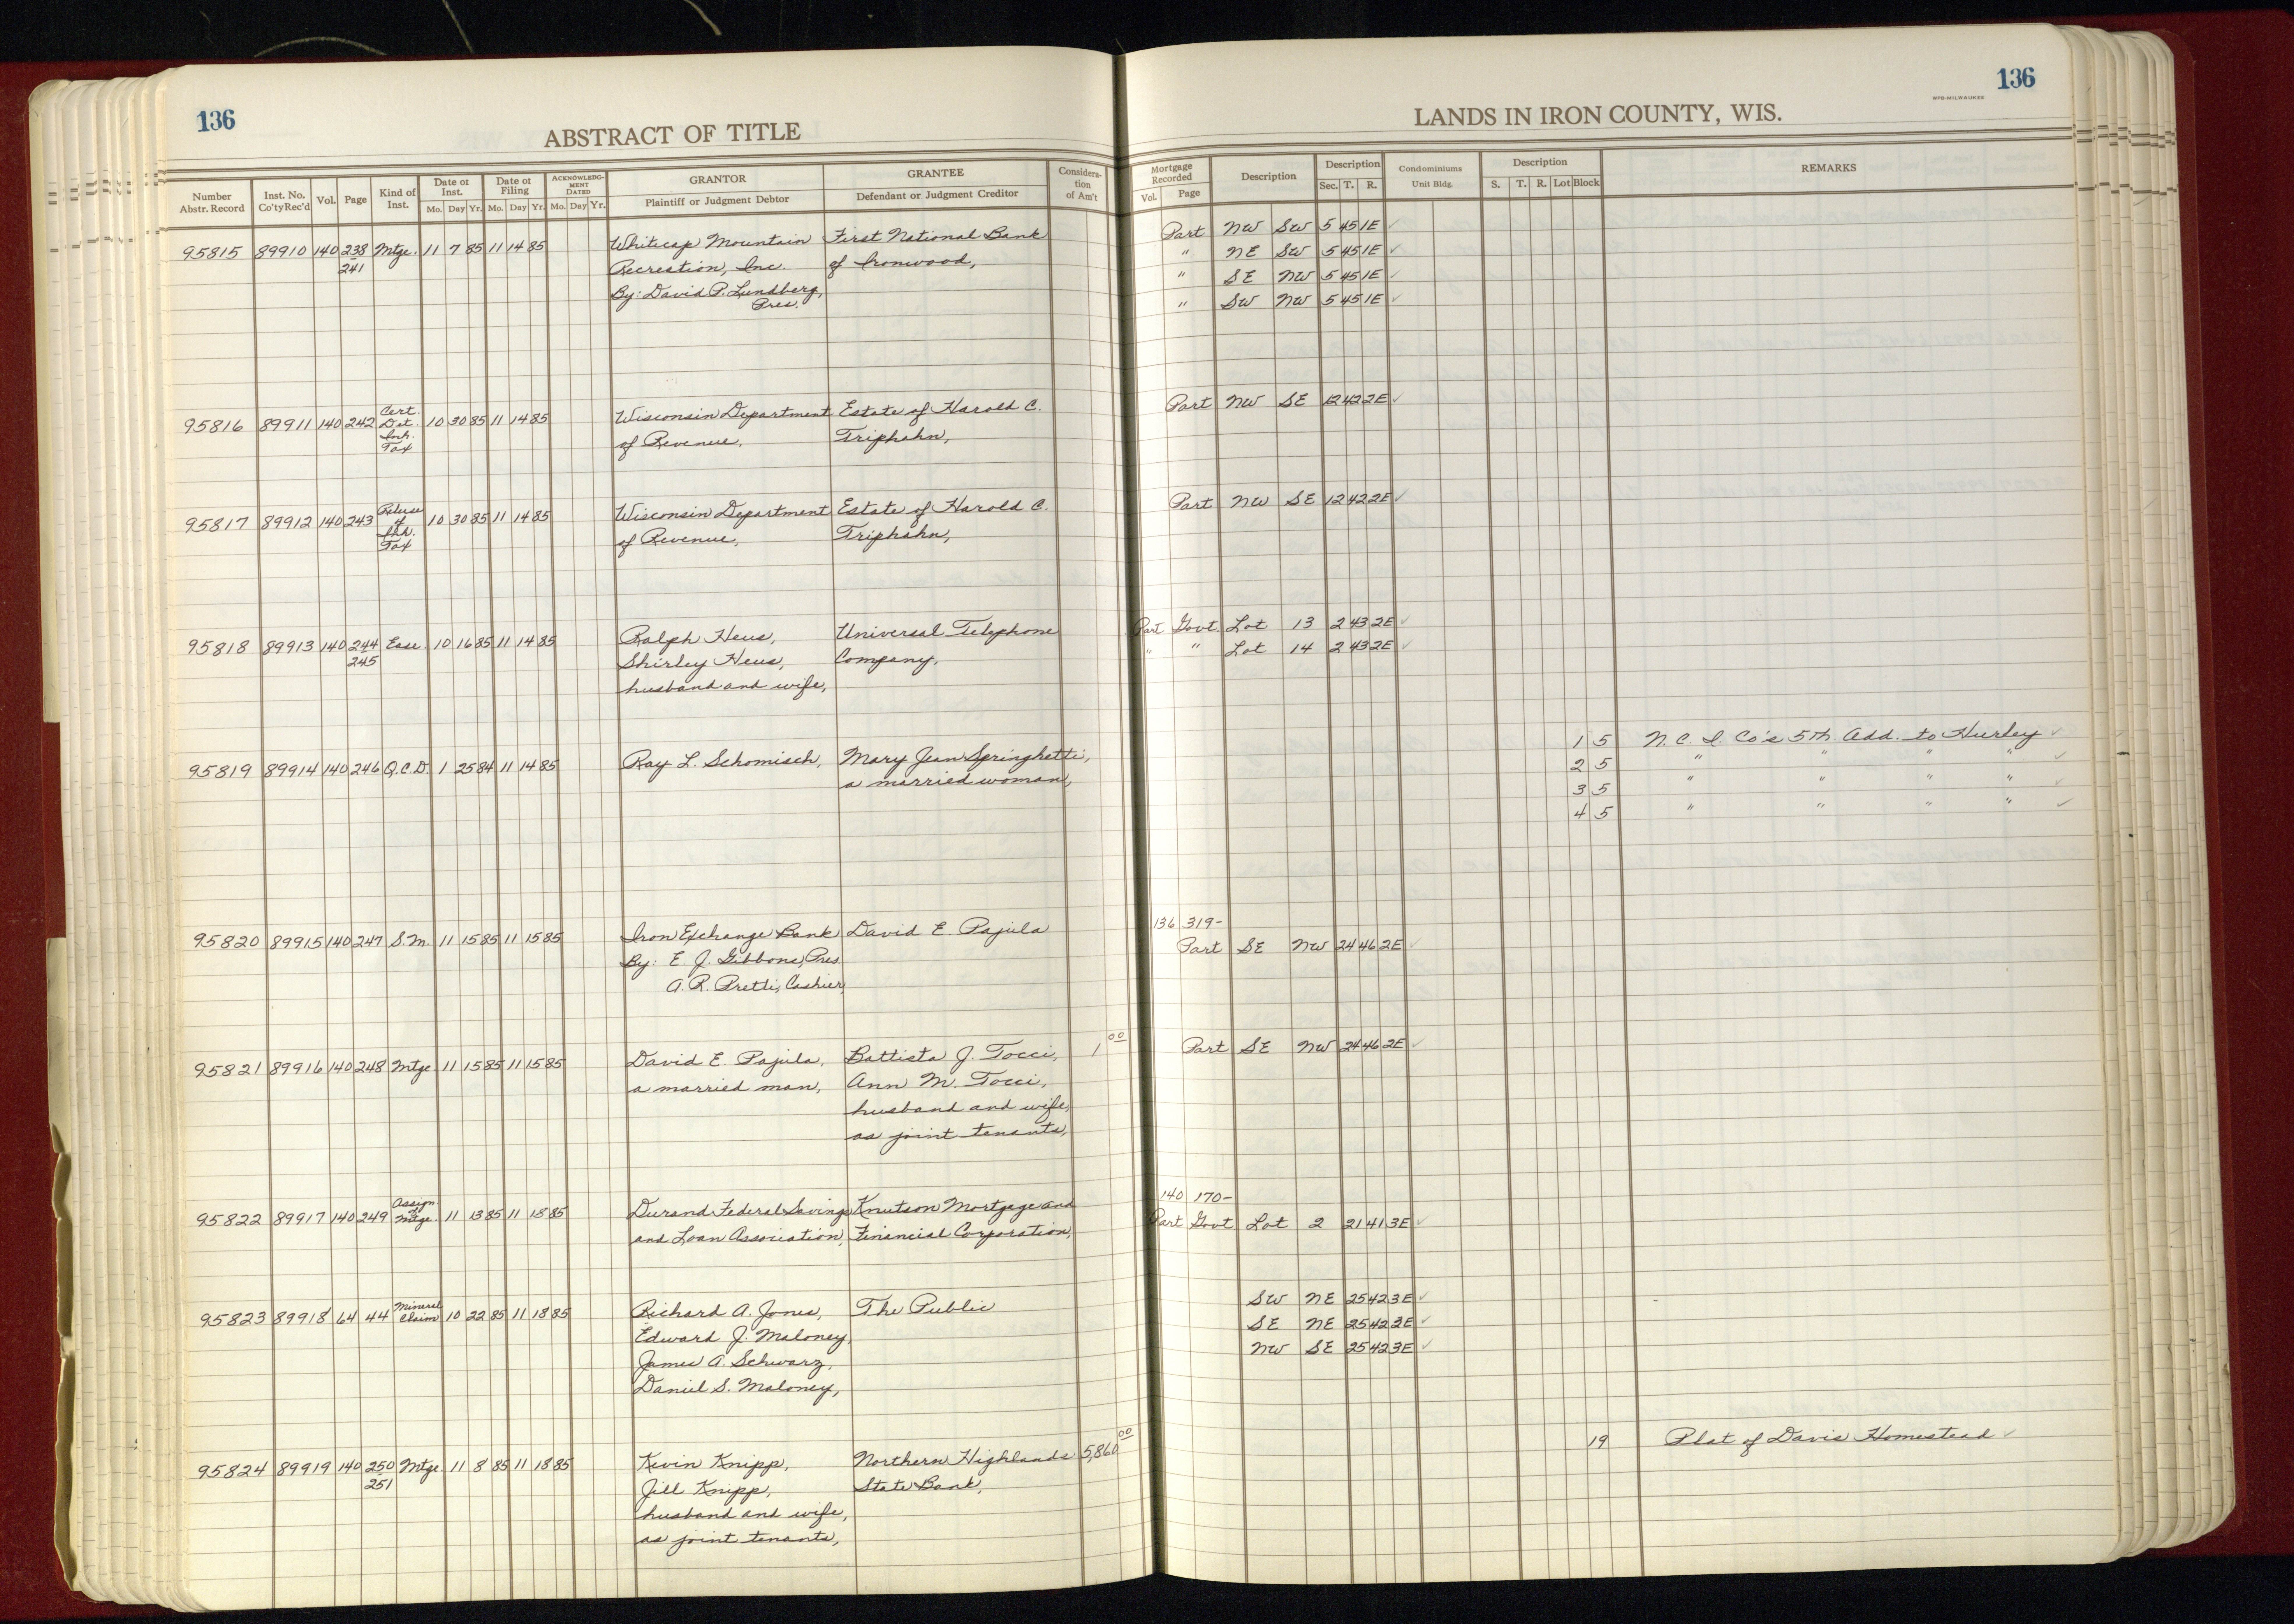 136
ABSTRACT OF TITLE
Number Abstr. Record | Inst. No. Co'ty Rec'd | Vol. | Page | Kind of Inst. | Date of Inst. Mo. Day Yr. | Date of Filing Mo. Day Yr. | ACKNOWLEDGMENT DATED Mo. Day Yr. | GRANTOR Plaintiff or Judgment Debtor | GRANTEE Defendant or Judgment Creditor | Consideration of Am't
95815 89910 140 238 Mtge. 11 7 85 11 14 85 Whitecap Mountain First National Bank
241 Recreation, Inc. of Ironwood,
By: David P. Lundberg,
Pres.
Cert.
95816 89911 140 242 Det. 10 30 85 11 14 85 Wisconsin Department Estate of Harold C.
Inh. of Revenue, Triphahn,
Tax
Release
95817 89912 140 243 of 10 30 85 11 14 85 Wisconsin Department Estate of Harold C.
Inh. of Revenue, Triphahn,
Tax
95818 89913 140 244 Ease. 10 16 85 11 14 85 Ralph Heus, Universal Telephone
245 Shirley Heus, Company,
husband and wife,
95819 89914 140 246 Q.C.D. 1 25 84 11 14 85 Ray L. Schomisch, Mary Jean Springhetti,
a married woman,
95820 89915 140 247 S.M. 11 15 85 11 15 85 Iron Exchange Bank David E. Pajula
By: E. J. Gibbons, Pres.
A. R. Pretti, Cashier,
95821 89916 140 248 Mtge 11 15 85 11 15 85 David E. Pajula, Battista J. Tocci, 1 00
a married man, Ann M. Tocci,
husband and wife,
as joint tenants,
Assign.
of
95822 89917 140 249 Mtge 11 13 85 11 18 85 Durand Federal Savings Knutson Mortgage and
and Loan Association, Financial Corporation,
Mineral
95823 89918 64 44 Claim 10 22 85 11 18 85 Richard A. Jones, The Public
Edward J. Maloney,
James A. Schwarz,
Daniel S. Maloney,
95824 89919 140 250 Mtge. 11 8 85 11 18 85 Kevin Knipp, Northern Highlands 5,860 00
251 Jill Knipp, State Bank,
husband and wife,
as joint tenants,
136
WPB-MILWAUKEE
LANDS IN IRON COUNTY, WIS.
Mortgage Recorded Vol. Page | Description | Description Sec. T. R. | Condominiums Unit Bldg. | Description S. T. R. Lot Block | REMARKS
Part NW SW 5 45 1E ✓
" NE SW 5 45 1E ✓
" SE NW 5 45 1E ✓
" SW NW 5 45 1E ✓
Part NW SE 12 42 2E ✓
Part NW SE 12 42 2E ✓
Part Govt. Lot 13 2 43 2E ✓
" " Lot 14 2 43 2E ✓
1 5 N. C. I. Co's 5th. Add. to Hurley ✓
2 5 " " " " ✓
3 5 " " " " ✓
4 5 " " " " ✓
136 319-
Part SE NW 24 46 2E ✓
Part SE NW 24 46 2E ✓
140 170-
Part Govt Lot 2 21 41 3E ✓
SW NE 25 42 3E ✓
SE NE 25 42 3E ✓
NW SE 25 42 3E ✓
19 Plat of Davis Homestead ✓